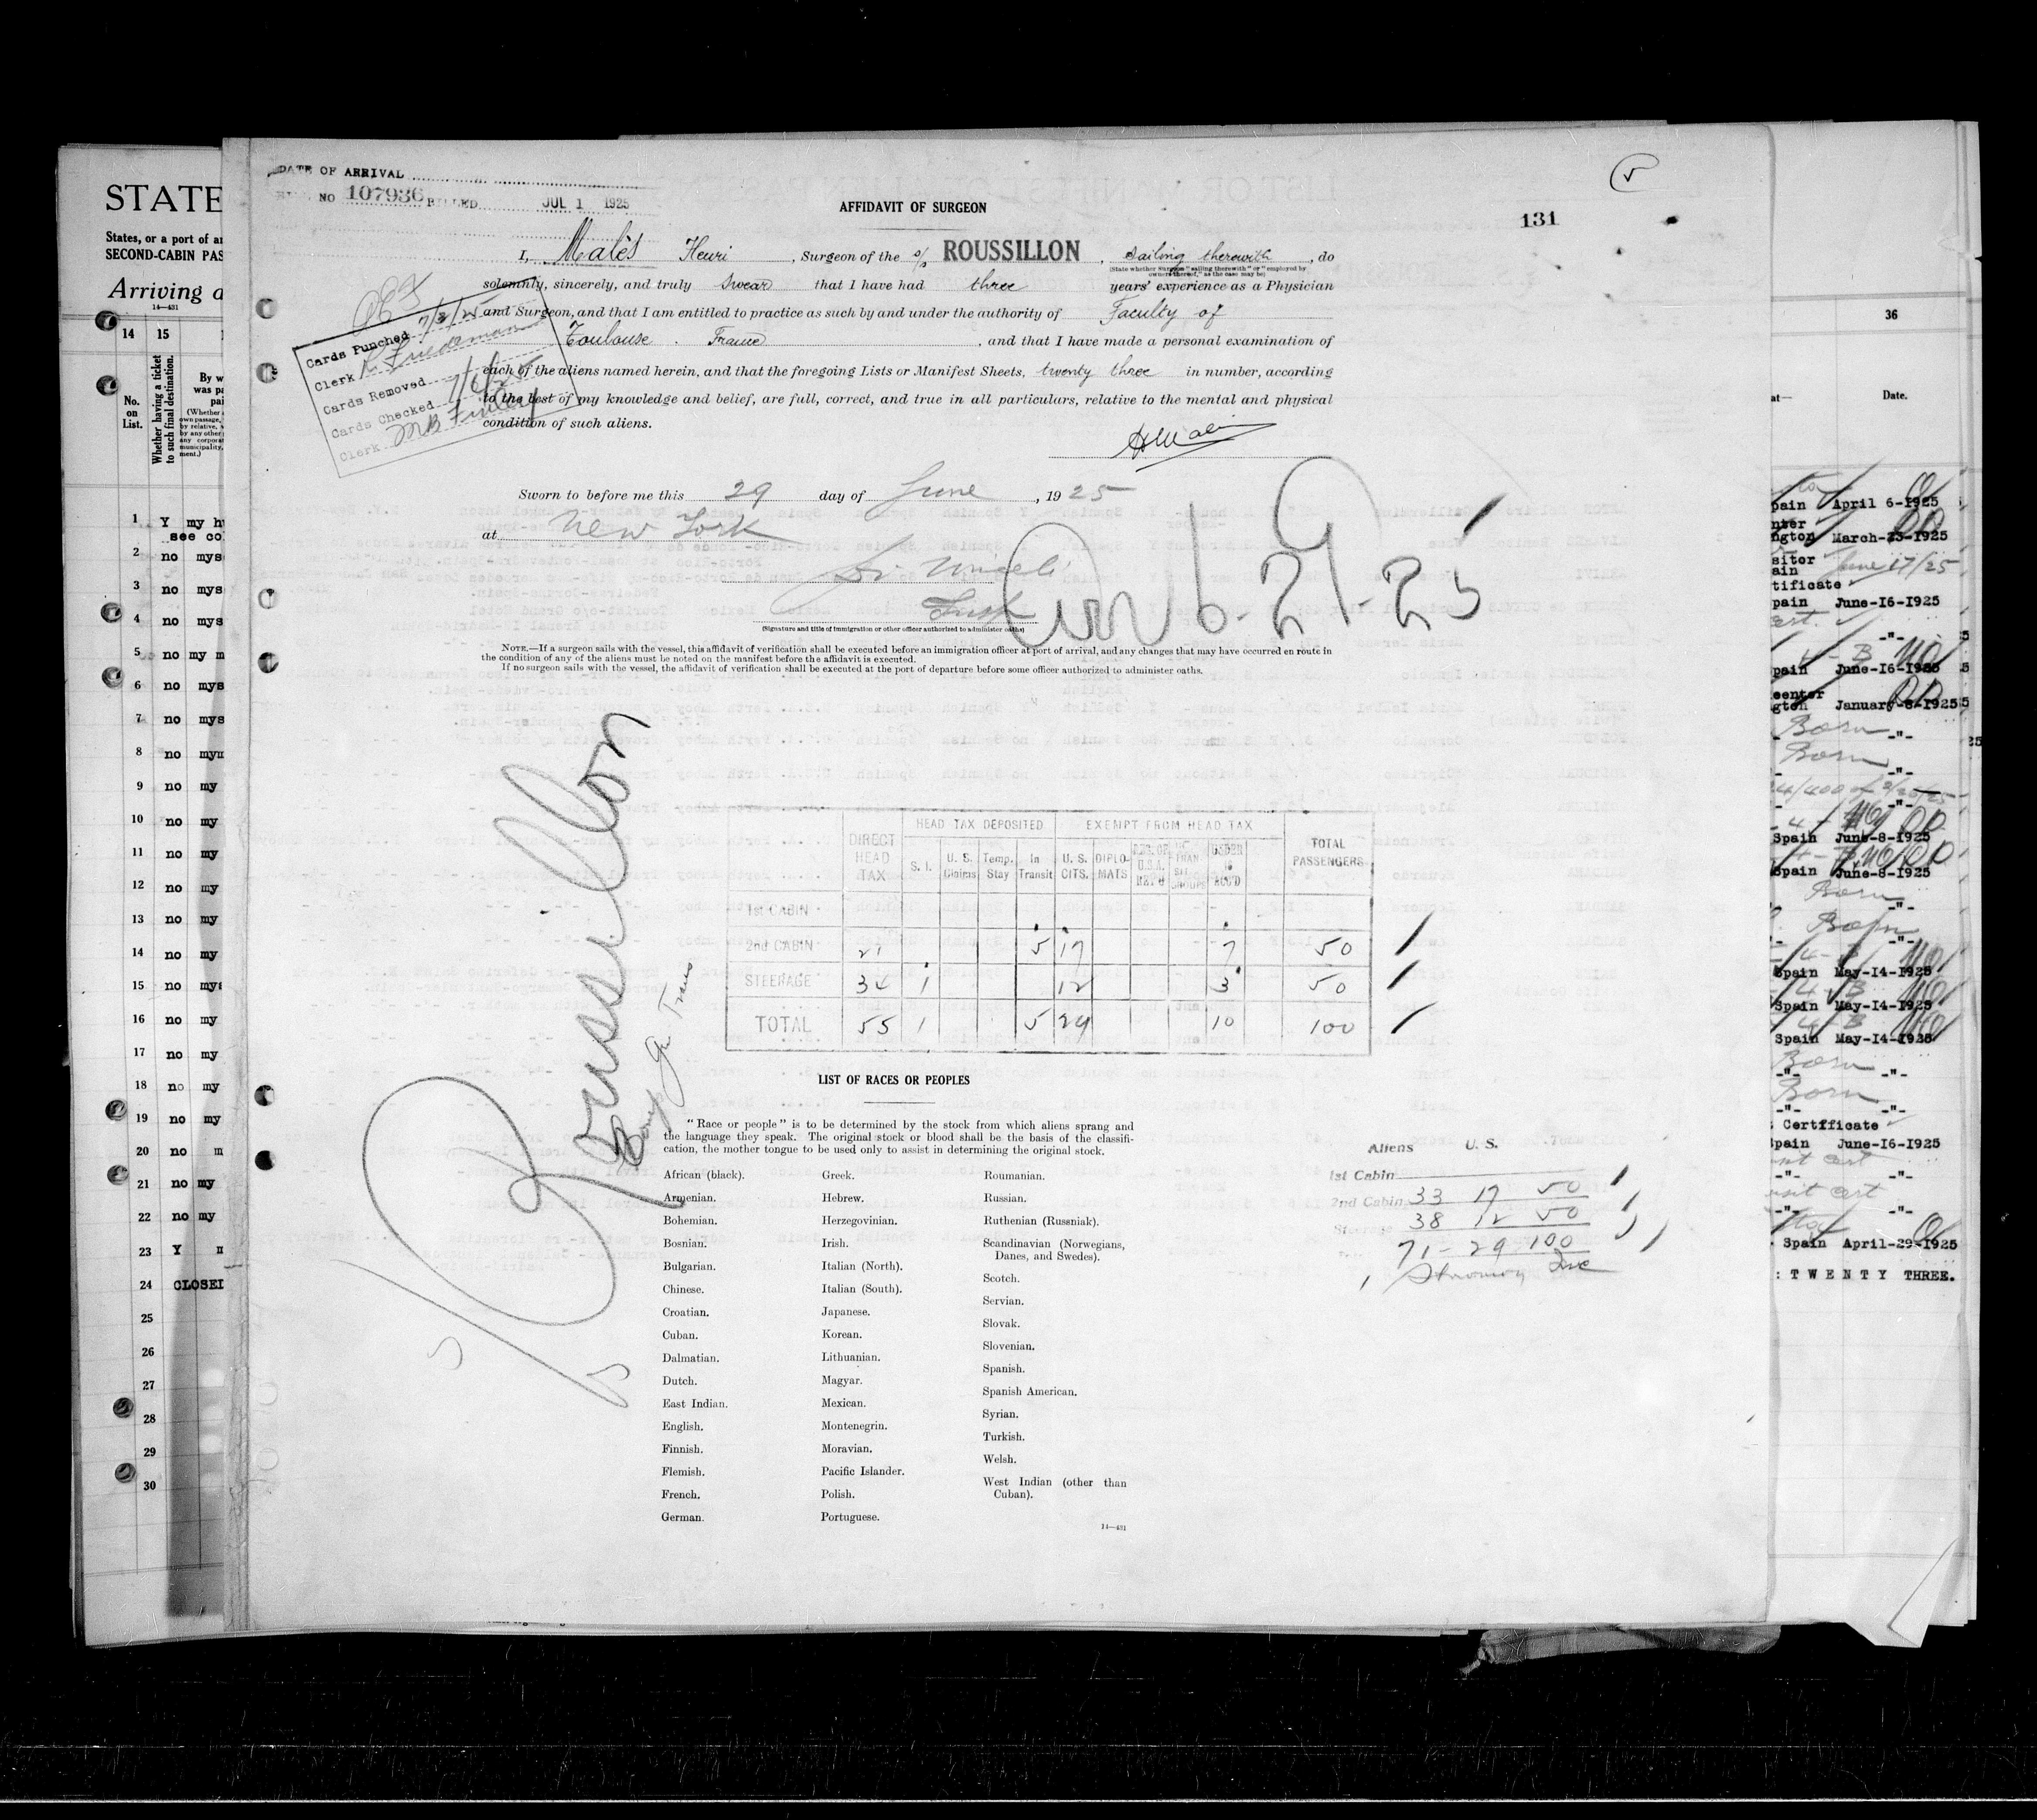 DATE OF ARRIVAL
NO 107936 BILLED JUL 1 1925
AFFIDAVIT OF SURGEON
131
I, Malès Henri, Surgeon of the s/s ROUSSILLON, sailing therewith, do
(State whether Surgeon "sailing therewith" or "employed by owners thereof," as the case may be)
solemnly, sincerely, and truly swear that I have had three years' experience as a Physician
and Surgeon, and that I am entitled to practice as such by and under the authority of Faculty of
Toulouse. France, and that I have made a personal examination of
each of the aliens named herein, and that the foregoing Lists or Manifest Sheets, twenty three in number, according
to the best of my knowledge and belief, are full, correct, and true in all particulars, relative to the mental and physical
condition of such aliens.
Cards Punched 7/3/25
Clerk K Friedeman
Cards Removed
Cards Checked 7/6/25
Clerk MB Finley
Sworn to before me this 29 day of June, 1925
at New York
6-29-25
(Signature and title of immigration or other officer authorized to administer oaths)
NOTE.—If a surgeon sails with the vessel, this affidavit of verification shall be executed before an immigration officer at port of arrival, and any changes that may have occurred en route in
the condition of any of the aliens must be noted on the manifest before the affidavit is executed.
If no surgeon sails with the vessel, the affidavit of verification shall be executed at the port of departure before some officer authorized to administer oaths.
Roussillon
DIRECT HEAD TAX HEAD TAX DEPOSITED EXEMPT FROM HEAD TAX TOTAL PASSENGERS
S. I. U. S. Claims Temp. Stay In Transit U. S. CITS. DIPLO-MATS UNDER 16 ACC'D
1st CABIN
2nd CABIN 21 5 17 7 50
STEERAGE 34 1 12 3 50
TOTAL 55 1 5 29 10 100
LIST OF RACES OR PEOPLES
"Race or people" is to be determined by the stock from which aliens sprang and
the language they speak. The original stock or blood shall be the basis of the classifi-
cation, the mother tongue to be used only to assist in determining the original stock.
African (black).
Armenian.
Bohemian.
Bosnian.
Bulgarian.
Chinese.
Croatian.
Cuban.
Dalmatian.
Dutch.
East Indian.
English.
Finnish.
Flemish.
French.
German.
Greek.
Hebrew.
Herzegovinian.
Irish.
Italian (North).
Italian (South).
Japanese.
Korean.
Lithuanian.
Magyar.
Mexican.
Montenegrin.
Moravian.
Pacific Islander.
Polish.
Portuguese.
Roumanian.
Russian.
Ruthenian (Russniak).
Scandinavian (Norwegians,
Danes, and Swedes).
Scotch.
Servian.
Slovak.
Slovenian.
Spanish.
Spanish American.
Syrian.
Turkish.
Welsh.
West Indian (other than
Cuban).
14—431
Aliens U. S.
1st Cabin
2nd Cabin 33 17 50
Steerage 38 12 50
71 - 29 100
STATE
States, or a port of
SECOND-CABIN PAS
Arriving a
14—431
14 15
No. on List.
Whether having a ticket to such final destination.
1 Y my
see
2 no mys
3 no mys
4 no mys
5 no my
6 no mys
7 no mys
8 no my
9 no my
10 no my
11 no my
12 no my
13 no my
14 no my
15 no mys
16 no my
17 no my
18 no my
19 no my
20 no m
21 no my
22 no my
23 Y
24 CLOSED
25
26
27
28
29
30
36
Date.
pain April 6-1925
ngton March-23-1925
sitor
ain June 17/25
tificate
pain June-16-1925
-"-
pain June-16-1925
gton January-8-1925
Born -"-
Born
-"-
-"-
Spain June-8-1925
Spain June-8-1925
Born
-"-
Born
-"-
Spain May-14-1925
Spain May-14-1925
Spain May-14-1925
Born
-"- -"-
Born
-"- -"-
Certificate
pain June-16-1925
-"- -"-
-"- -"-
Spain April-29-1925
: TWENTY THREE.